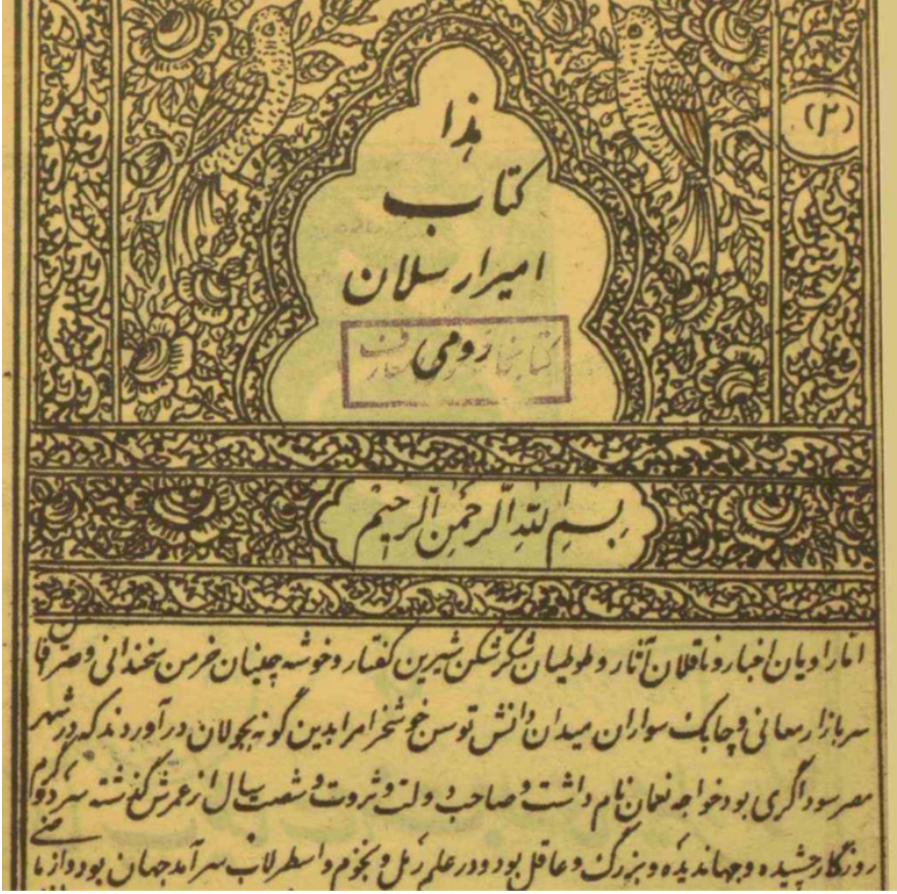 (۲)
هذا
کتاب
امیرارسلان
رومی
کتابخانه معارف
بسم الله الرحمن الرحیم
اما راویان اخبار و ناقلان آثار و طوطیان شکرشکن شیرین گفتار و خوشه چینان خرمن سخندانی و صرافان
سر بازار معانی و چابک سواران میدان دانش توسن خوشخرام را بدین گونه بجولان درآوردند که در شهر
مصر سوداگری بود خواجه نعمان نام داشت و صاحب دولت و ثروت و شصت سال از عمرش گذشته سرد و گرم
روزگار چشیده و جهاندیده و بزرگ و عاقل بود و در علم رمل و نجوم و اسطرلاب سرآمد جهان بود و از ماضی